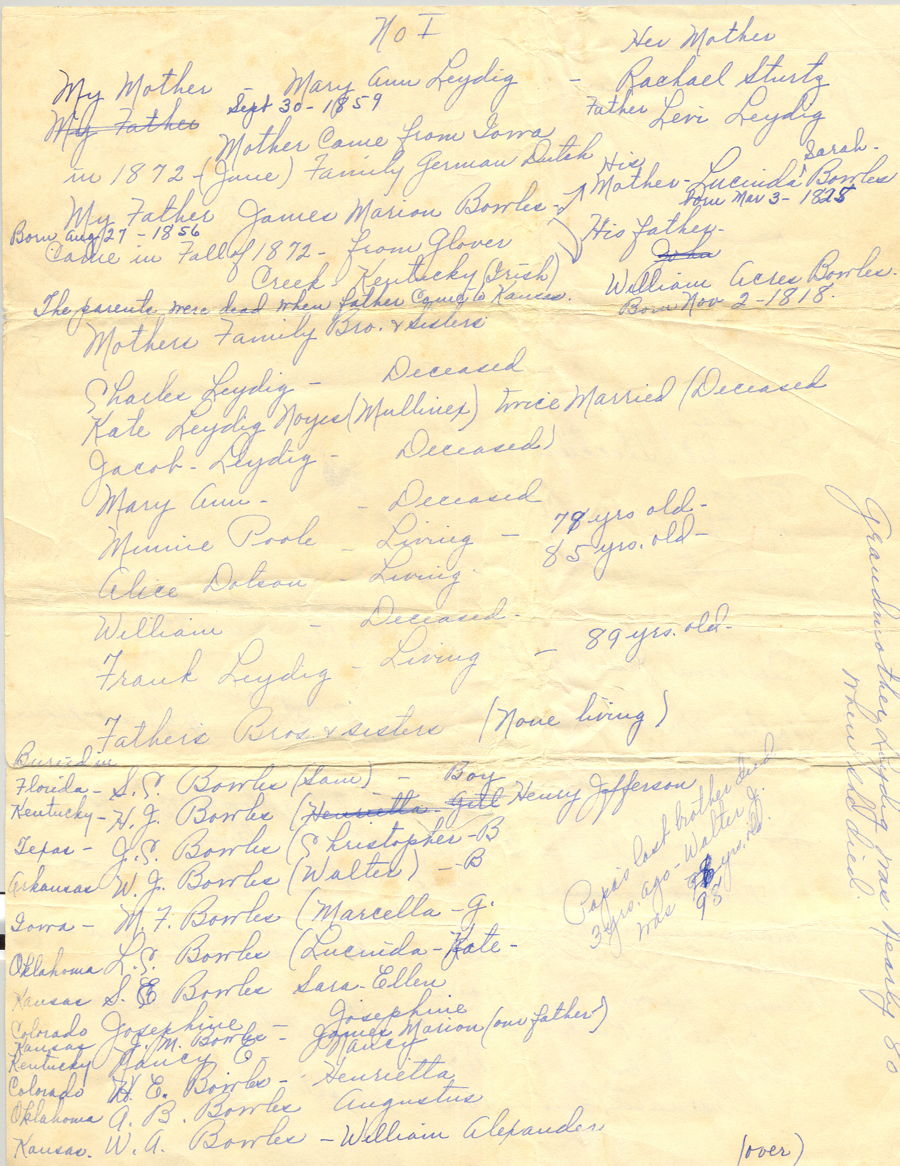 No I
Her Mother
My Mother Mary Ann Leydig - Rachael Sturtz
Sept 30 - 1859
My Father
Father Levi Leydig
Mother Came from Iowa
in 1872 - (June) Family German Dutch
His Sarah -
Mother - Lucinda Bowles
born Mar 3 - 1825
My Father James Marion Bowles -
Born Aug 27 - 1856
His father -
John
Came in Fall of 1872 - from Glover
Creek - Kentucky (Irish)
William Acres Bowles.
Born Nov 2 - 1818.
The parents were dead when father came to Kansas.
Mothers Family Bro. & sisters
Charles Leydig - Deceased
Kate Leydig Noyes (Mullinex) twice Married (Deceased
Jacob - Leydig - Deceased)
Mary Ann - - Deceased
Minnie Poole - Living - 78 yrs old -
Alice Dotson - Living. 85 yrs. old -
William - Deceased.
Frank Leydig - Living - 89 yrs. old -
Grandmother Leydig was nearly 80
when she died.
Father's Bros. & sisters (None living)
Buried in
Florida - S. C. Bowles (Sam) - Boy
Kentucky - H. J. Bowles (Henrietta - Girl Henry Jefferson
Texas - J. C. Bowles (Christopher - B
Arkansas W. J. Bowles (Walter) - B
Iowa - M. F. Bowles (Marcella - G.
Oklahoma L. C. Bowles (Lucinda - Kate -
Kansas S. E Bowles Sara - Ellen
Colorado Josephine - Josephine
Kansas J. M. Bowles - James Marion (our father)
Kentucky Nancy E - Nancy
Colorado H. E. Bowles - Henrietta
Oklahoma A. B. Bowles Augustus
Kansas. W. A. Bowles - William Alexander
Papa's last brother died
3 yrs. ago - Walter J.
was 95 yrs. old.
(over)